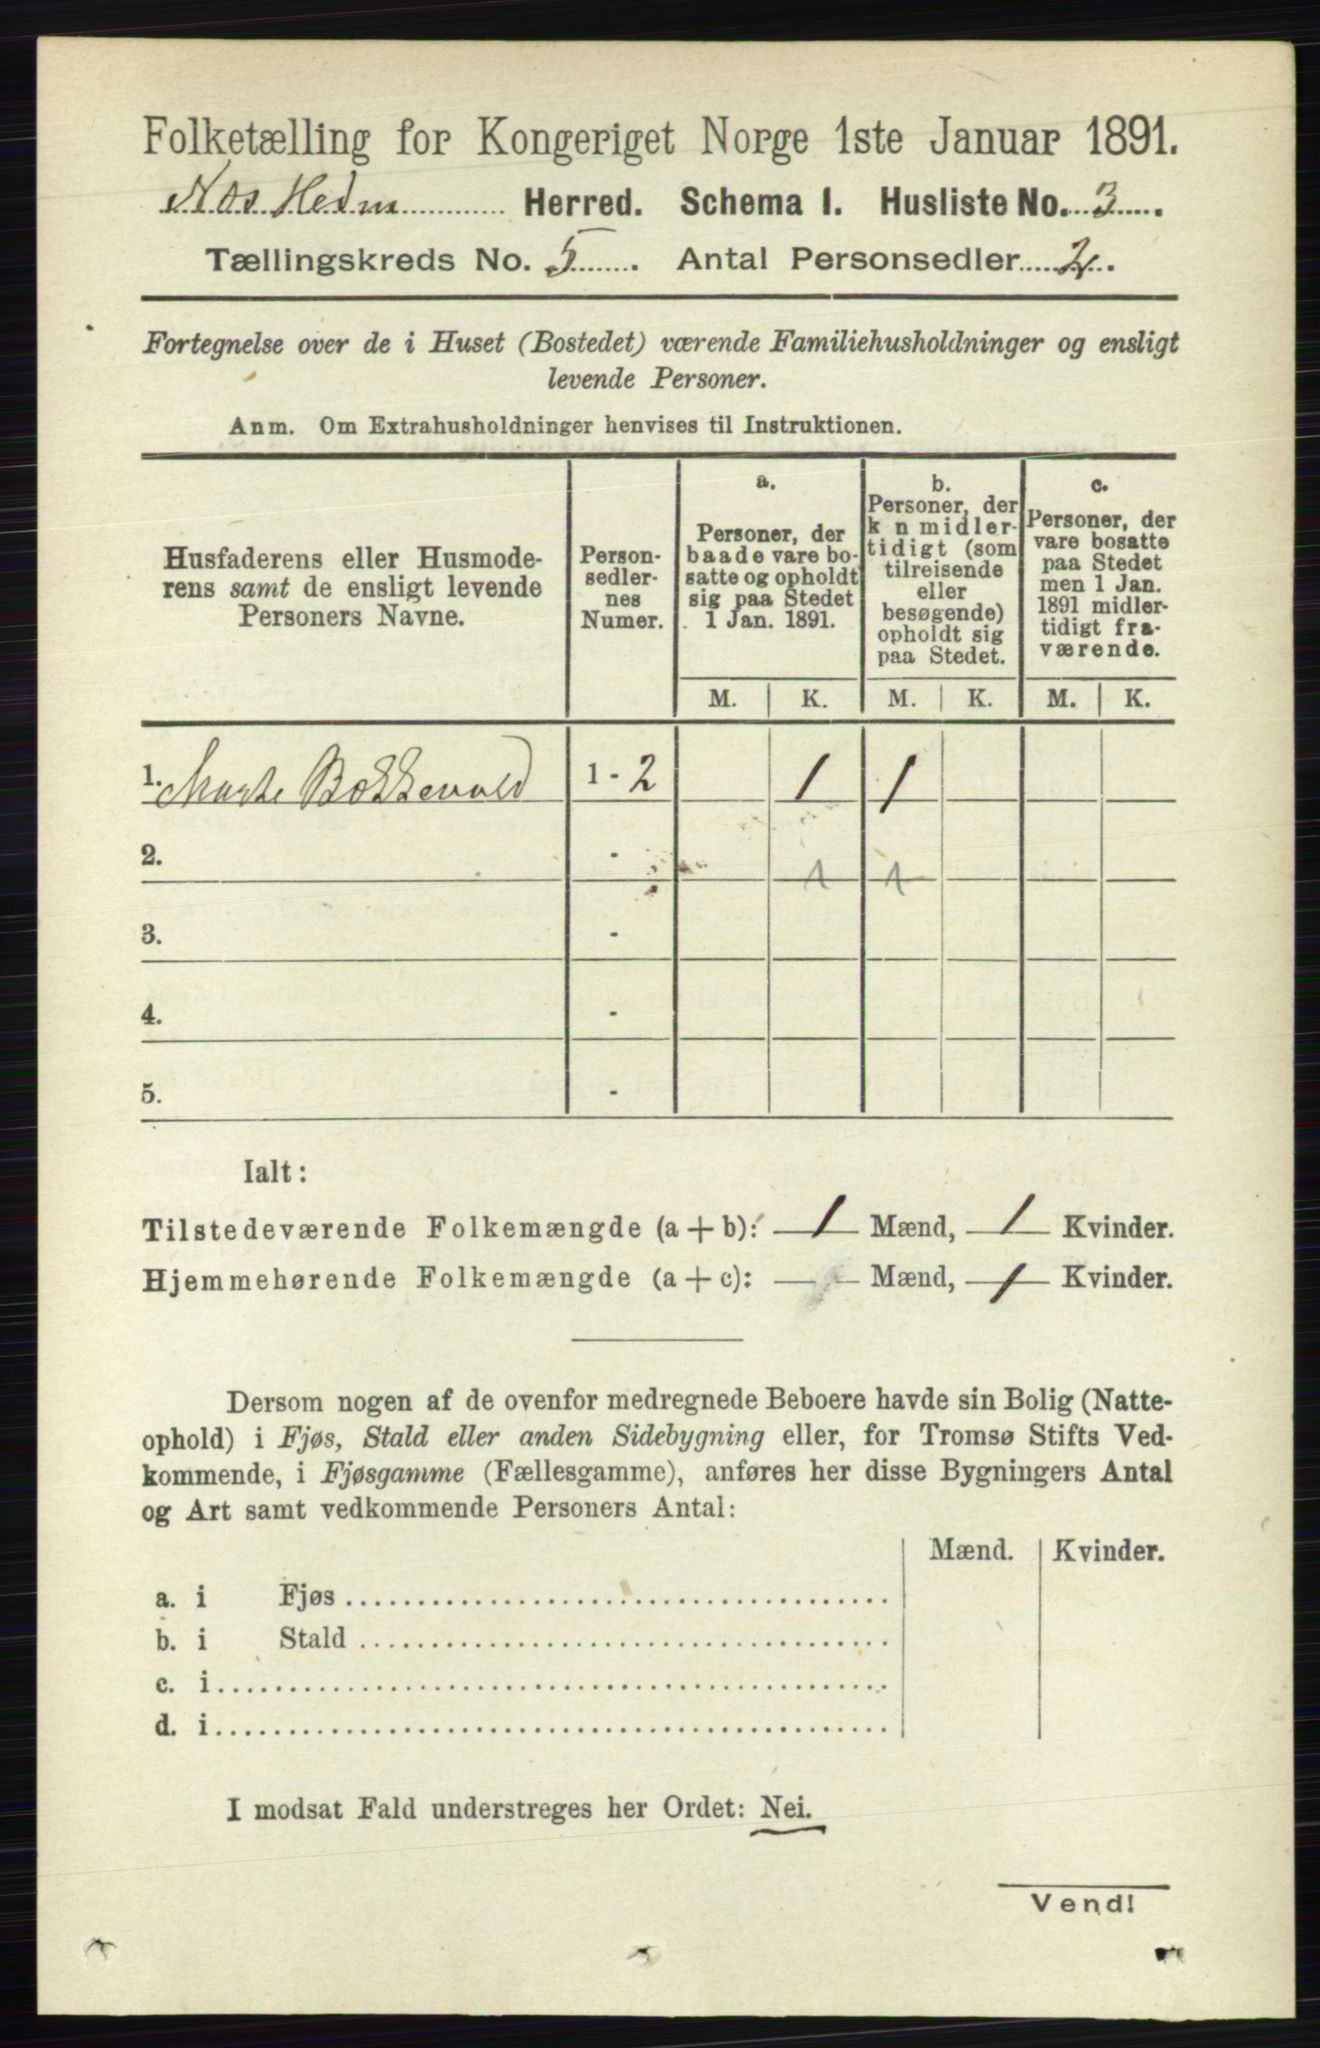 Folketælling for Kongeriget Norge 1ste Januar 1891.
Nes Hedm Herred. Schema 1. Husliste No. 3.
Tællingskreds No. 5. Antal Personsedler 2.
Fortegnelse over de i Huset (Bostedet) værende Familiehusholdninger og ensligt
levende Personer.
Anm. Om Extrahusholdninger henvises til Instruktionen.
Husfaderens eller Husmode-
rens samt de ensligt levende
Personers Navne.
Person-
sedler-
nes
Numer.
a.
Personer, der
baade vare bo-
satte og opholdt
sig paa Stedet
1 Jan. 1891.
b.
Personer, der
k n midler-
tidigt (som
tilreisende
eller
besøgende)
opholdt sig
paa Stedet.
c.
Personer, der
vare bosatte
paa Stedet
men 1 Jan.
1891 midler-
tidigt fra-
værende.
M. K. M. K. M. K.
1. Marte 1 - 2 1 1
2. - 1 1
3. -
4. -
5. -
Ialt:
Tilstedeværende Folkemængde (a + b): 1 Mænd, 1 Kvinder.
Hjemmehørende Folkemængde (a + c): — Mænd, 1 Kvinder.
Dersom nogen af de ovenfor medregnede Beboere havde sin Bolig (Natte-
ophold) i Fjøs, Stald eller anden Sidebygning eller, for Tromsø Stifts Ved-
kommende, i Fjøsgamme (Fællesgamme), anføres her disse Bygningers Antal
og Art samt vedkommende Personers Antal:
Mænd. Kvinder.
a. i Fjøs
b. i Stald
c. i
d. i
I modsat Fald understreges her Ordet: Nei.
Vend!